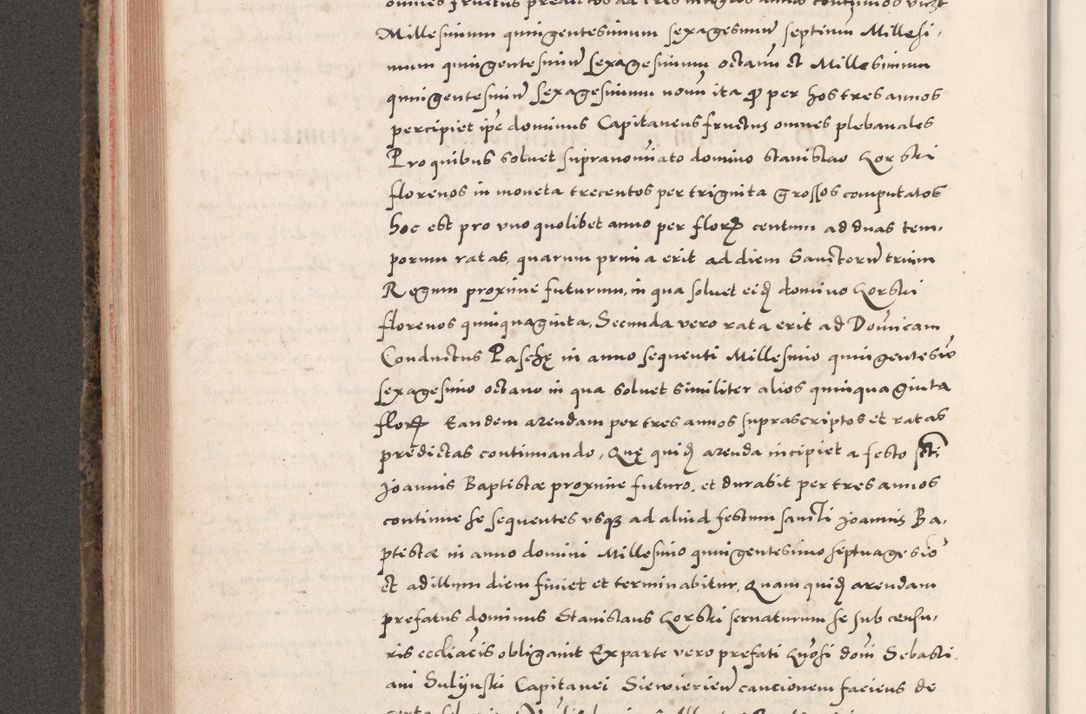 omnes fructus predictos ad tres integros annos continuos videlt
Millesimum quingentesimum sexagesimum septimum Millesi-
mum quingentesimum sexagesimum octavum et Millesimum
quingentesimum sexagesimum nonum ita quod per hos tres annos
percipiet ipse dominus Capitaneus fructus omnes plebanales
Pro quibus soluet supranominato domino Stanislao Gorski
florenos in moneta trecentos per triginta grossos computatos
hoc est pro uno quolibet anno per flor. centum ad duas tem-
porum ratas, quarum prima erit ad diem Sanctorum trium
Regum proxime futurum, in qua soluet eidem domino Gorski
florenos quinquaginta, Secunda vero rata erit ad Dominicam
Conductus Paschę in anno sequenti Millesimo quingentesimo
sexagesimo octavo in qua soluet similiter alios quinquaginta
flor. tandem arendam per tres annos suprascriptos et ratas
predictas continuando, Quę quidem arenda incipiet a festo sancti
Joannis Baptistae proxime futuro, et durabit per tres annos
continue se sequentes usque ad aliud festum sancti Joannis Ba-
ptistae in anno domini Millesimo quingentesimo septuagesimo
et ad illum diem finiet et terminabitur, Quam quidem arendam
prefatus dominus Stanislaus Gorski servaturum se sub censu-
ris ecclesiasticis obligavit Ex parte vero prefati Generosi domini Sebasti-
ani Sulijnski Capitanei Siewierien. cautionem faciens de